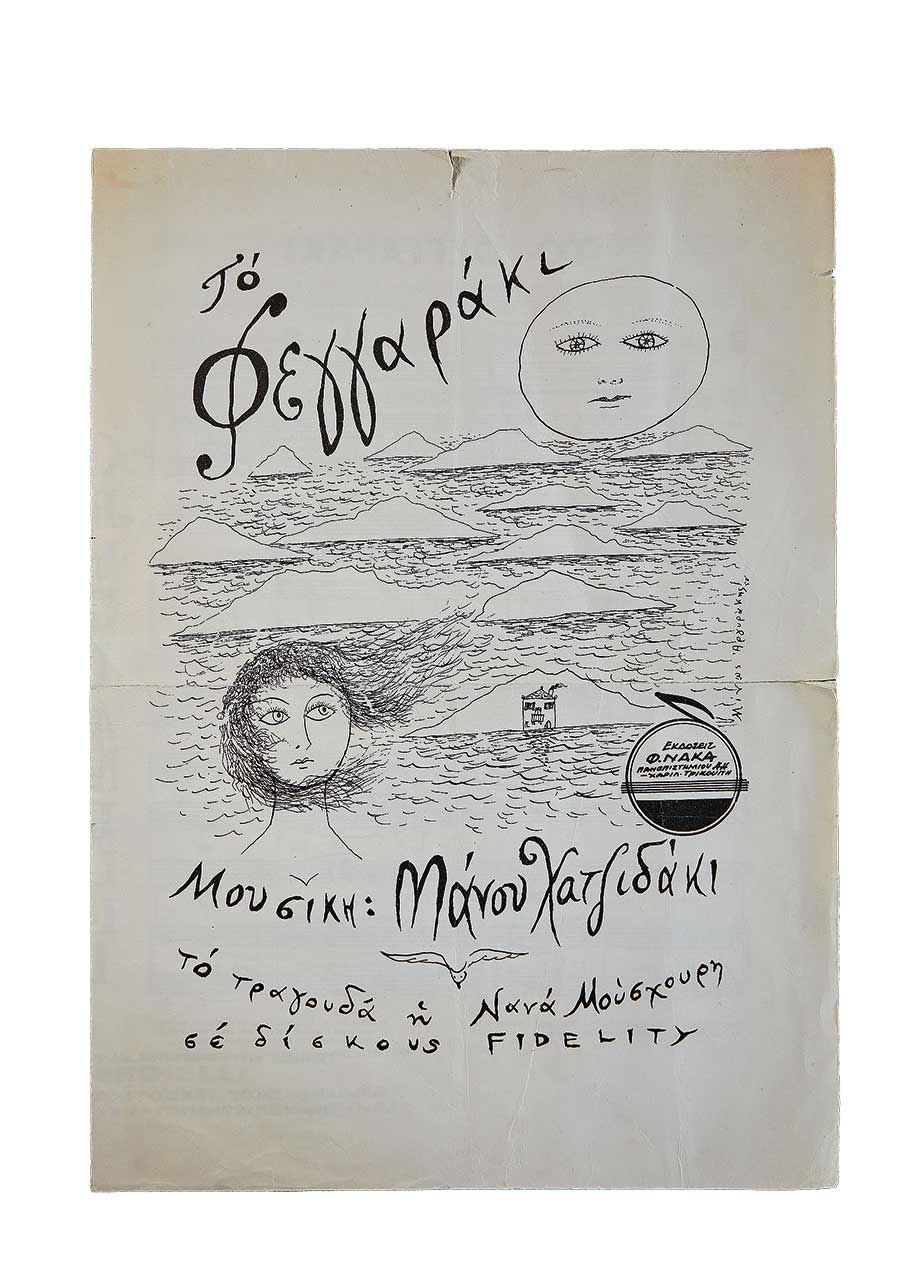 Τό
Φεγγαράκι
Μίνως Αργυράκης
ΕΚΔΟΣΕΙΣ
Φ. ΝΑΚΑ
ΠΑΝΕΠΙΣΤΗΜΙΟΥ
-ΧΑΡΙΛ. ΤΡΙΚΟΥΠΗ
Μουσική: Μάνου Χατζιδάκι
τό τραγουδά ἡ Νανά Μούσχουρη
σέ δίσκους FIDELITY